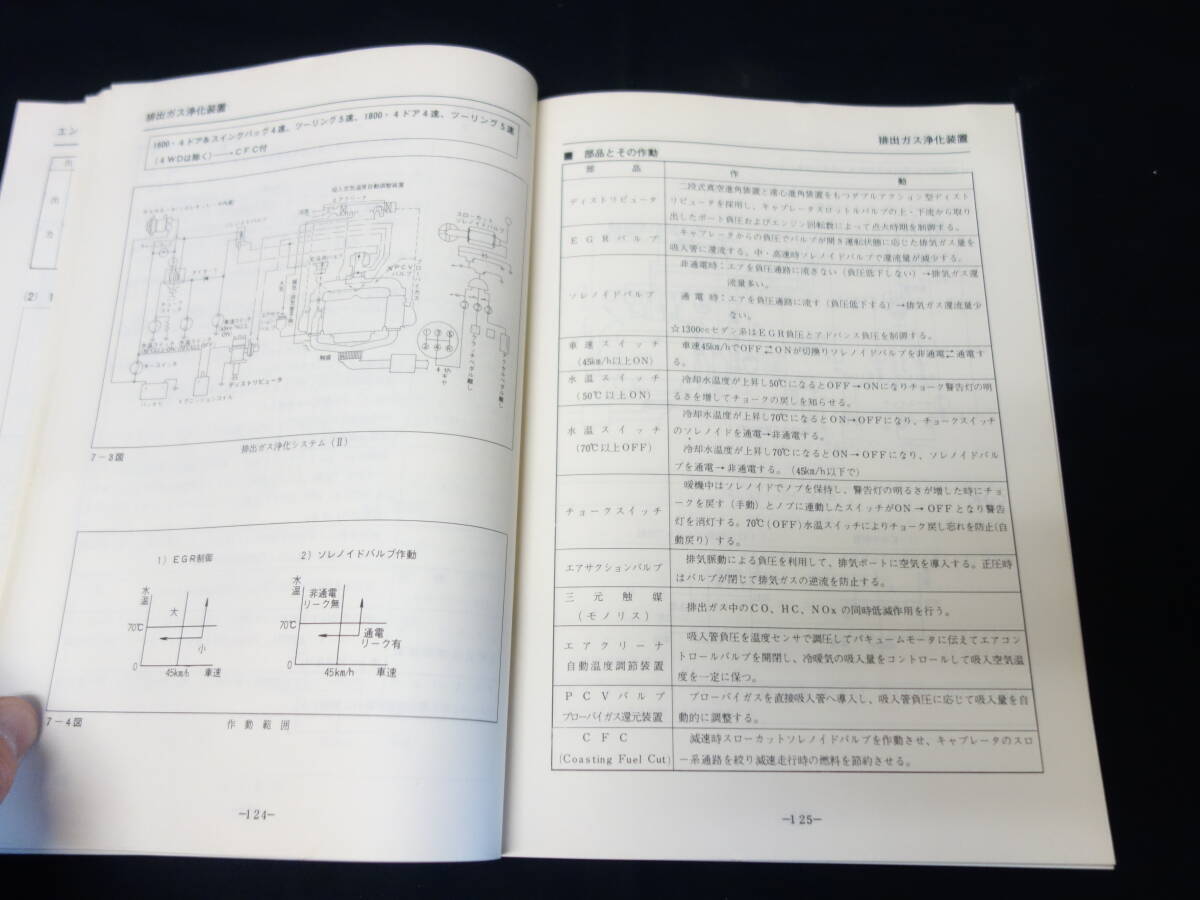 排出ガス浄化装置
1600・4ドア&スイングバック4速、ツーリング5速、1800・4ドア4速、ツーリング5速
(4WDは除く)―→CFC付
吸入空気温度自動調整装置
エアクリーナ
スローカット
ソレノイドバルブ
PCV
バルブ
ディストリビュータ
イグニッションコイル
バッテリ
キースイッチ
排出ガス浄化システム(Ⅱ)
7-3図
1) EGR制御
水温
70℃
大
小
0
45km/h 車速
2) ソレノイドバルブ作動
水温
非通電
リーク無
70℃
通電
リーク有
0
45km/h 車速
7-4図
作動範囲
-124-
エン
(2)
排出ガス浄化装置
■ 部品とその作動
部品 作動
ディストリビュータ
二段式真空進角装置と遠心進角装置をもつダブルアクション型ディスト
リビュータを採用し、キャブレータスロットルバルブの上・下流から取り
出したポート負圧およびエンジン回転数によって点火時期を制御する。
EGRバルブ
キャブレータからの負圧でバルブが開き運転状態に応じた排気ガス量を
吸入管に還流する。中・高速時ソレノイドバルブで還流量が減少する。
ソレノイドバルブ
非通電時:エアを負圧通路に流さない(負圧低下しない)→排気ガス還
流量多い。
通電時:エアを負圧通路に流す(負圧低下する)→排気ガス還流量少
ない。
☆1300ccセダン系はEGR負圧とアドバンス負圧を制御する。
車速スイッチ
(45km/h以上ON)
車速45km/hでOFF⇄ONが切換りソレノイドバルブを非通電⇄通電す
る。
水温スイッチ
(50℃以上ON)
冷却水温度が上昇し50℃になるとOFF→ONになりチョーク警告灯の明
るさを増してチョークの戻しを知らせる。
水温スイッチ
(70℃以上OFF)
冷却水温度が上昇し70℃になるとON→OFFになり、チョークスイッチ
のソレノイドを通電→非通電する。
冷却水温度が上昇し70℃になるとON→OFFになり、ソレノイドバル
ブを通電→非通電する。(45km/h以下で)
チョークスイッチ
暖機中はソレノイドでノブを保持し、警告灯の明るさが増した時にチョ
ークを戻す(手動)とノブに連動したスイッチがON→OFFとなり警告
灯を消灯する。70℃(OFF)水温スイッチによりチョーク戻し忘れを防止(自
動戻り)する。
エアサクションバルブ
排気脈動による負圧を利用して、排気ポートに空気を導入する。正圧時
はバルブが閉じて排気ガスの逆流を防止する。
三元触媒
(モノリス)
排出ガス中のCO、HC、NOxの同時低減作用を行う。
エアクリーナ
自動温度調節装置
吸入管負圧を温度センサで調圧してバキュームモータに伝えてエアコン
トロールバルブを開閉し、冷暖気の吸入量をコントロールして吸入空気温
度を一定に保つ。
PCVバルブ
ブローバイガス還元装置
ブローバイガスを直接吸入管へ導入し、吸入管負圧に応じて吸入量を自
動的に調整する。
CFC
(Coasting Fuel Cut)
減速時スローカットソレノイドバルブを作動させ、キャブレータのスロ
ー系通路を絞り減速走行時の燃料を節約させる。
-125-